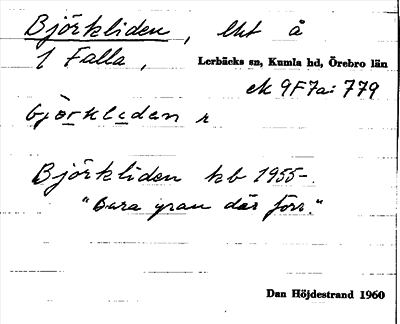 Björkliden, lht å
1 Falla,
Lerbäcks sn, Kumla hd, Örebro län
ek 9F7a: 779
björkliden r
Björkliden kb 1955-.
"Bara gran där förr."
Dan Höjdestrand 1960